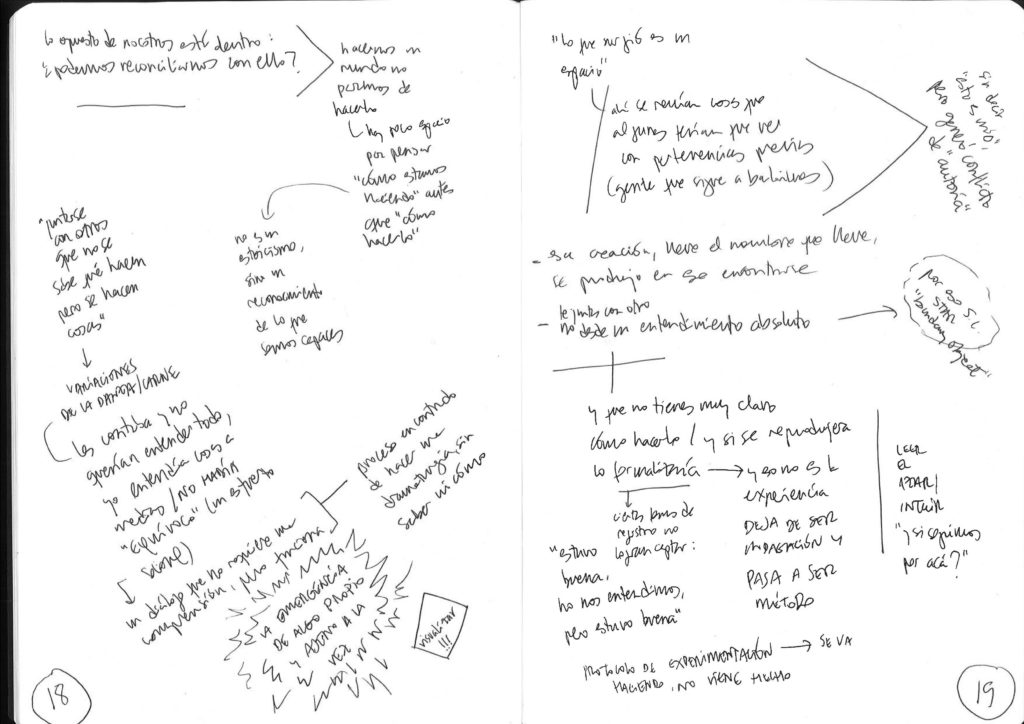 lo opuesto de nosotros esté dentro:
¿podemos reconciliarnos con ello?
hacemos un
mundo no
paramos de
hacerlo
hay poco espacio
por pensar
"cómo estamos
haciendo" antes
que "cómo
hacerlo"
no es un
esoicismo,
sin un
reconocimiento
de lo que
somos capaces
"juntarse
con otros
que no se
sabe qué hacen
pero se hacen
cosas"
VARIACIONES
DE LA DANZA/CARNE
les contaba y no
querían entender todo,
yo entendía cosas a
medias / NO HABÍA
"EQUÍVOCO" (un esfuerzo
un diálogo que no requiere una
comprensión, pero funciona
proceso encontrado
de hacer una
dramaturgia, sin
saber ni cómo
LA EMERGENCIA
DE ALGO PROPIO
Y AJENO A LA
VEZ
visualizar
!!!
18
"Lo que surgió es un
espacio"
ahí se reunían cosas que
algunas tenían que ver
con pertenencias previas
(gente que sigue a bailarinos)
sin decir
"esto es mío",
pero generó conflicto
de "autoría"
- esa creación, lleve el nombre que lleve,
se produjo en ese encontrarse
te juntas con otro
- no desde un entendimiento absoluto
por eso S.L.
STAR
"boundary object"
y que no tienes muy claro
cómo hacerlo / y si se reprodujera
lo formalizaría → y eso no es la
experiencia
DEJA DE SER
INDAGACIÓN Y
PASA A SER
MÉTODO
ciertas formas de
registro no
logran captar:
"estuvo
buena,
no nos entendimos,
pero estuvo buena"
LEER
EL
AZAR/
INTUIR
"¿y si seguimos
por acá?"
PROTOCOLO DE EXPERIMENTACIÓN → SE VA
HACIENDO, NO VIENE HECHO
19